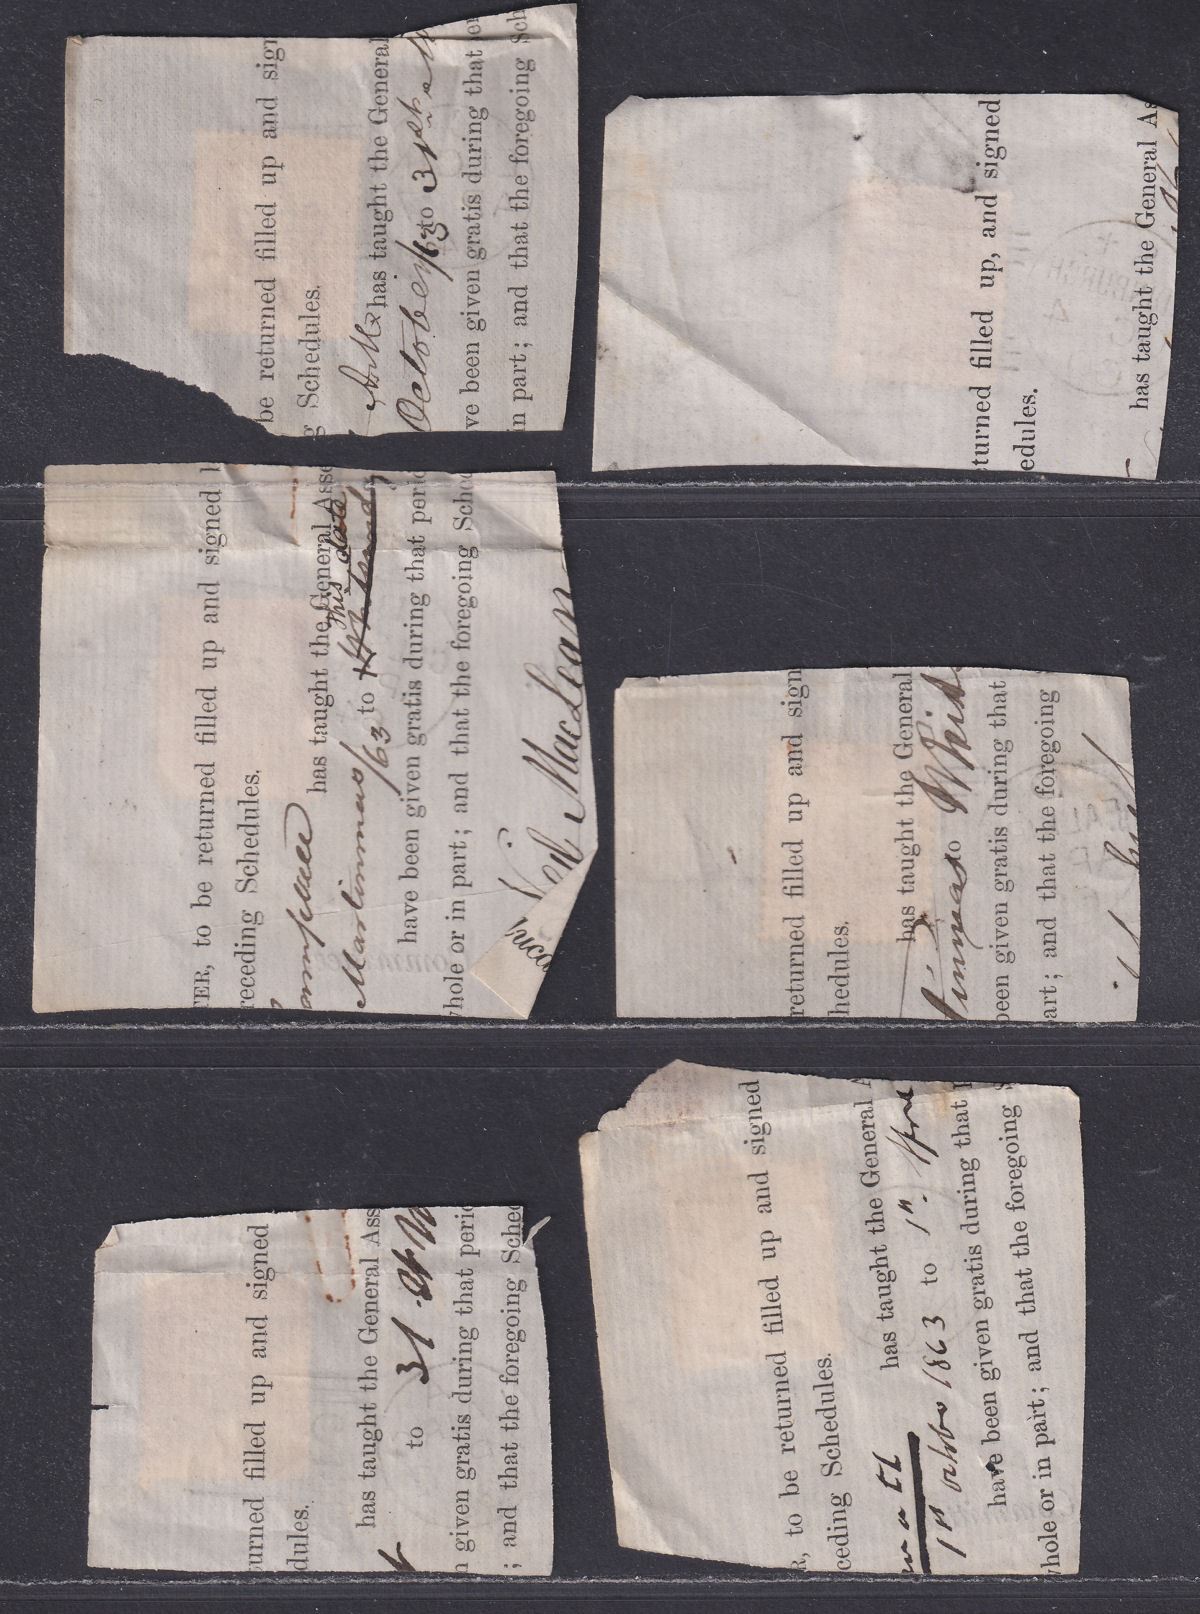 be returned filled up and sign
g Schedules.
has taught the General
October /63 to 31st
ve been given gratis during that
in part; and that the foregoing Sch
turned filled up, and signed
edules.
has taught the General As
TER, to be returned filled up and signed
receding Schedules.
has taught the General Asse
this date
Martinmas /63 to
have been given gratis during that perio
whole or in part; and that the foregoing Sched
Neil MacLean
returned filled up and sign
hedules.
has taught the General
to Whits
been given gratis during that
part; and that the foregoing
urned filled up and signed
dules.
has taught the General Ass
to 31st
n given gratis during that perio
; and that the foregoing Sched
R, to be returned filled up and signed
ceding Schedules.
has taught the General A
1st 1863 to 1st
have been given gratis during that
whole or in part; and that the foregoing S